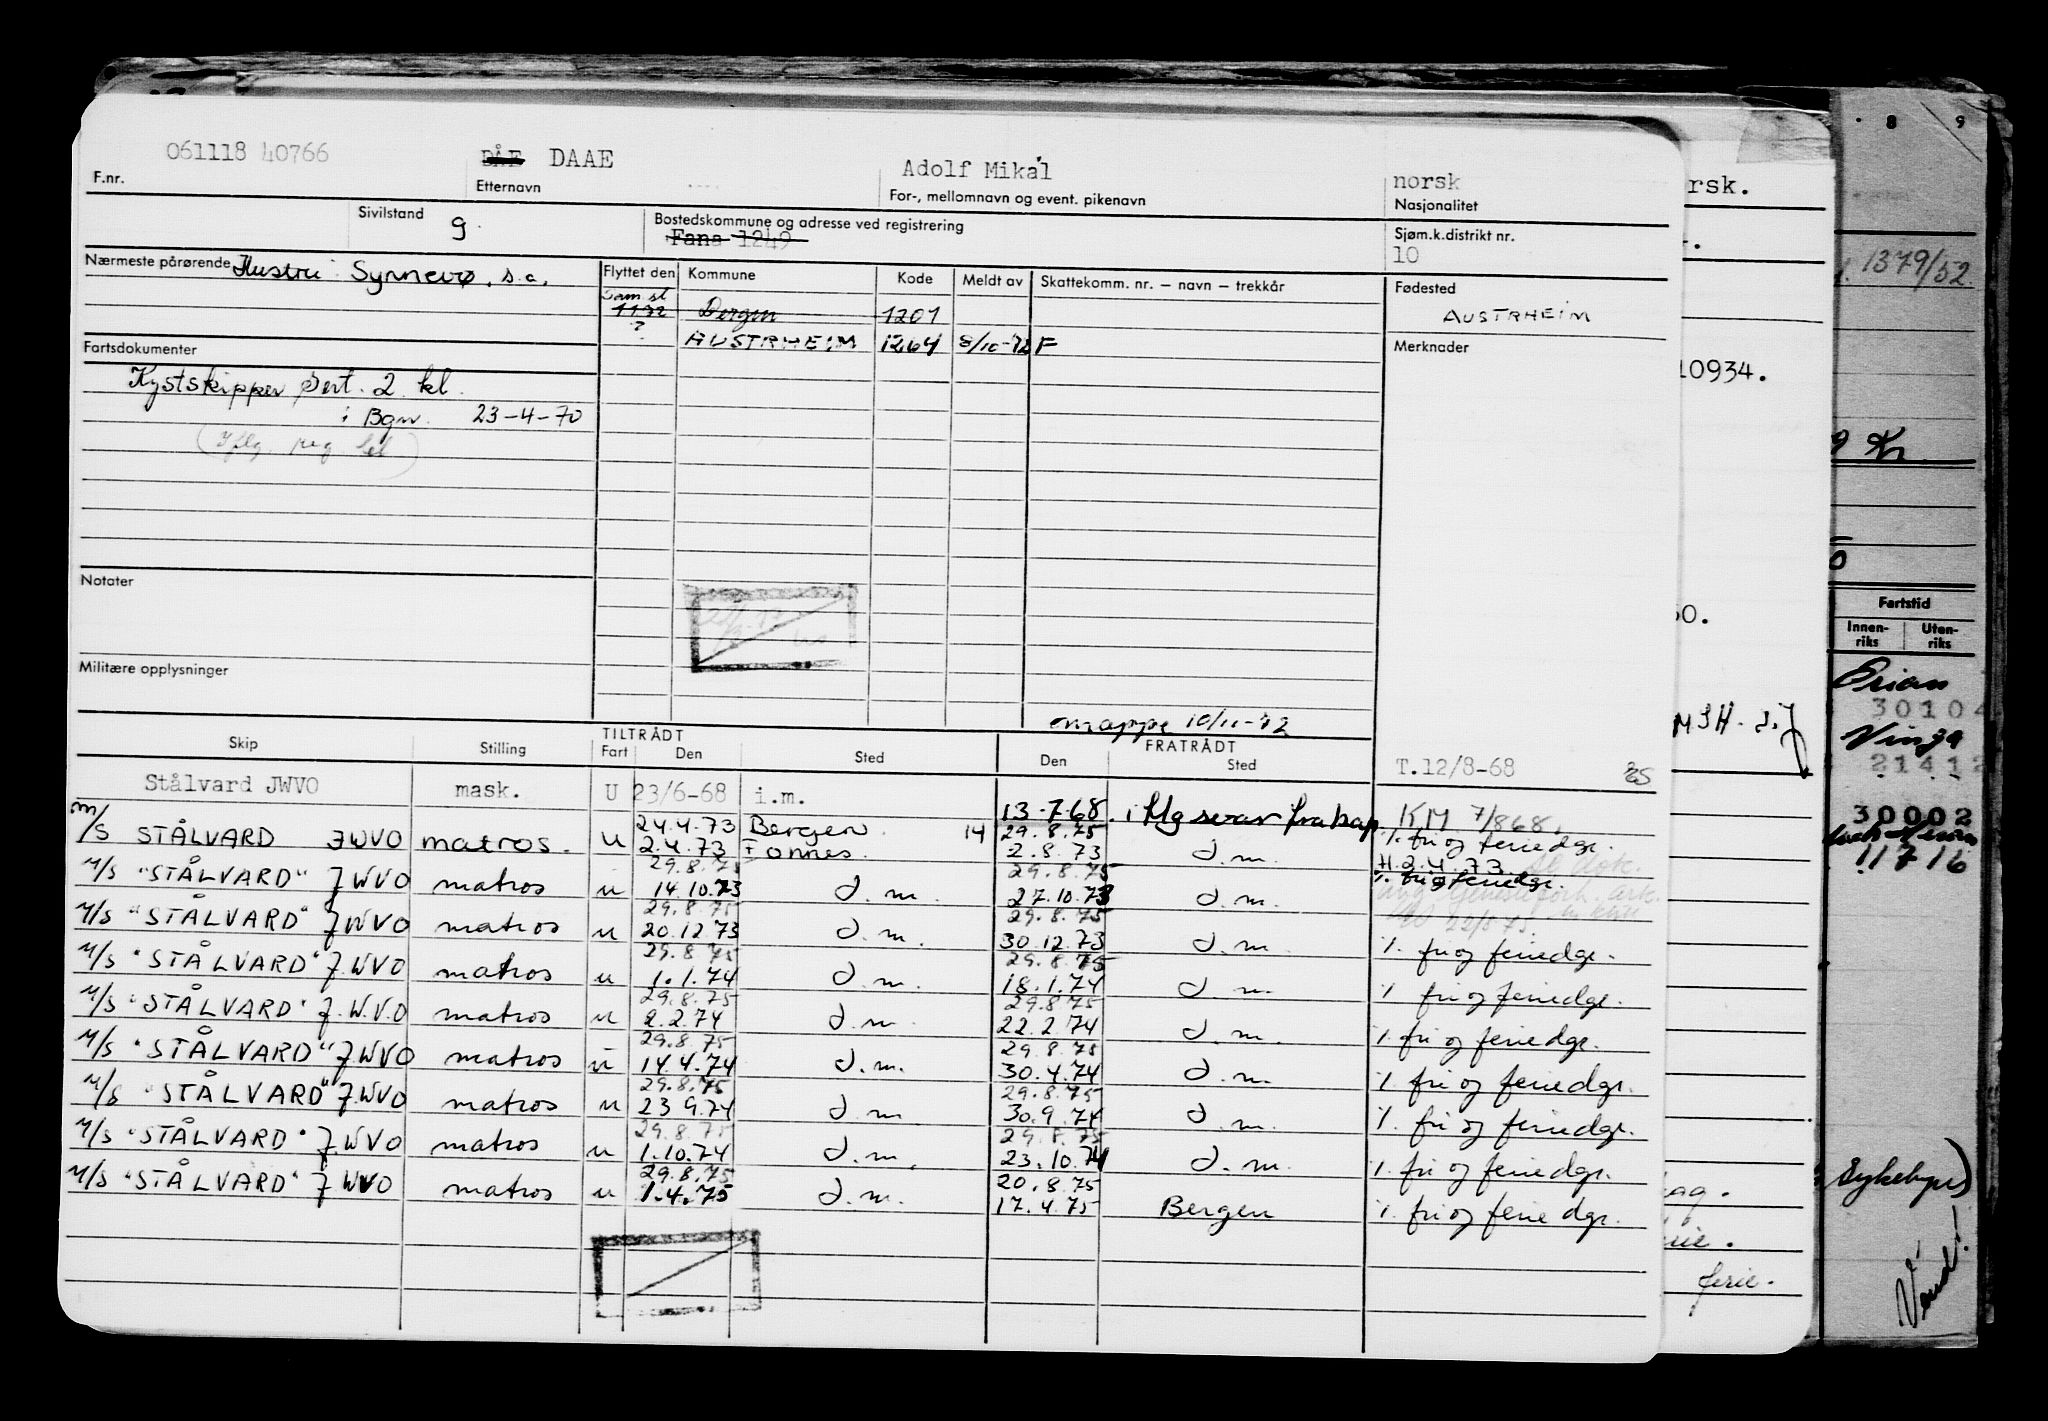 061118 40766 DÅE DAAE Adolf Mikal norsk
F.nr. Etternavn For-, mellomnavn og event. pikenavn Nasjonalitet
Sivilstand g. Bostedskommune og adresse ved registrering Sjøm.k.distrikt nr.
Fana 1249 10
Nærmeste pårørende Hustru Synnevø, s.a. Flyttet den Kommune Kode Meldt av Skattekomm. nr. — navn — trekkår Fødested
Bergen 1201 AUSTRHEIM
? AUSTRHEIM 1264 8/10-72 F
Fartsdokumenter Merknader
Kystskipper Sert. 2 kl.
i Bgn. 23-4-70
Notater
Militære opplysninger
mappe 10/11-72
Skip Stilling TILTRÅDT Fart Den Sted FRATRÅDT Den Sted T.12/8-68
Stålvard JWVO mask. U 23/6-68 i.m. 13-7-68 KM 7/868.
24.4.73 Bergen 14 29.8.75
M/S STÅLVARD JWVO matros. u 2.4.73 Fonnes. 2.8.73 I.m. %. fri og feriedgr.
29.8.75 29.8.75 H.2.4.73
M/S "STÅLVARD" JWVO matros u 14.10.73 I.m. 27.10.73 I.m. %. fri og feriedgr.
29.8.75 29.8.75
M/S "STÅLVARD" JWVO matros u 20.12.73 I.m. 30.12.73 I.m. %. fri og feriedgr.
29.8.75 29.8.75
M/S "STÅLVARD" J.WVO matros u 1.1.74 I.m. 18.1.74 I.m. % fri og feriedgr.
29.8.75 29.8.75
M/S "STÅLVARD" J.W.V.O matros u 2.2.74 I.m. 22.2.74 I.m. %. fri og feriedgr.
29.8.75 29.8.75
M/S "STÅLVARD" J.WVO matros u 14.4.74 I.m. 30.4.74 I.m. %. fri og feriedgr.
29.8.75 29.8.75
M/S "STÅLVARD" J.WVO matros u 23.9.74 I.m. 30.9.74 I.m. %. fri og feriedgr.
29.8.75 29.8.75
M/S "STÅLVARD" J.WVO matros u 1.10.74 I.m. 23.10.74 I.m. %. fri og feriedgr.
29.8.75 20.8.75
M/S "STÅLVARD" J.WVO matros u 1.4.75 I.m. 17.4.75 Bergen %. fri og feriedgr.
rsk.
10934.
ferie.
8 9
1379/52
Kr
Fartstid
Innen-riks Uten-riks
Orion
30104
Vinga
21412
30002
11716
Vend!